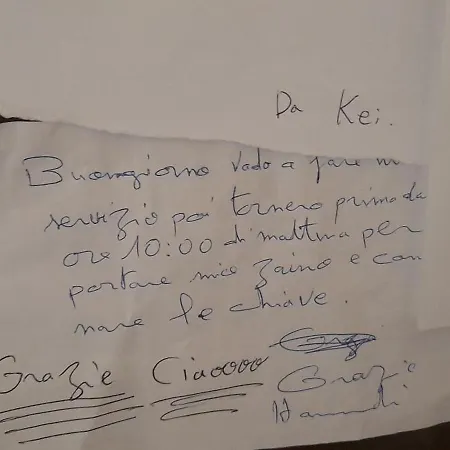 Da Kei.
Buongiorno vado a fare un
servizio poi tornero primo da
ore 10:00 di mattina per
portare mio zaino e con
nare le chiave.
Grazie Ciaoooo
Grazie